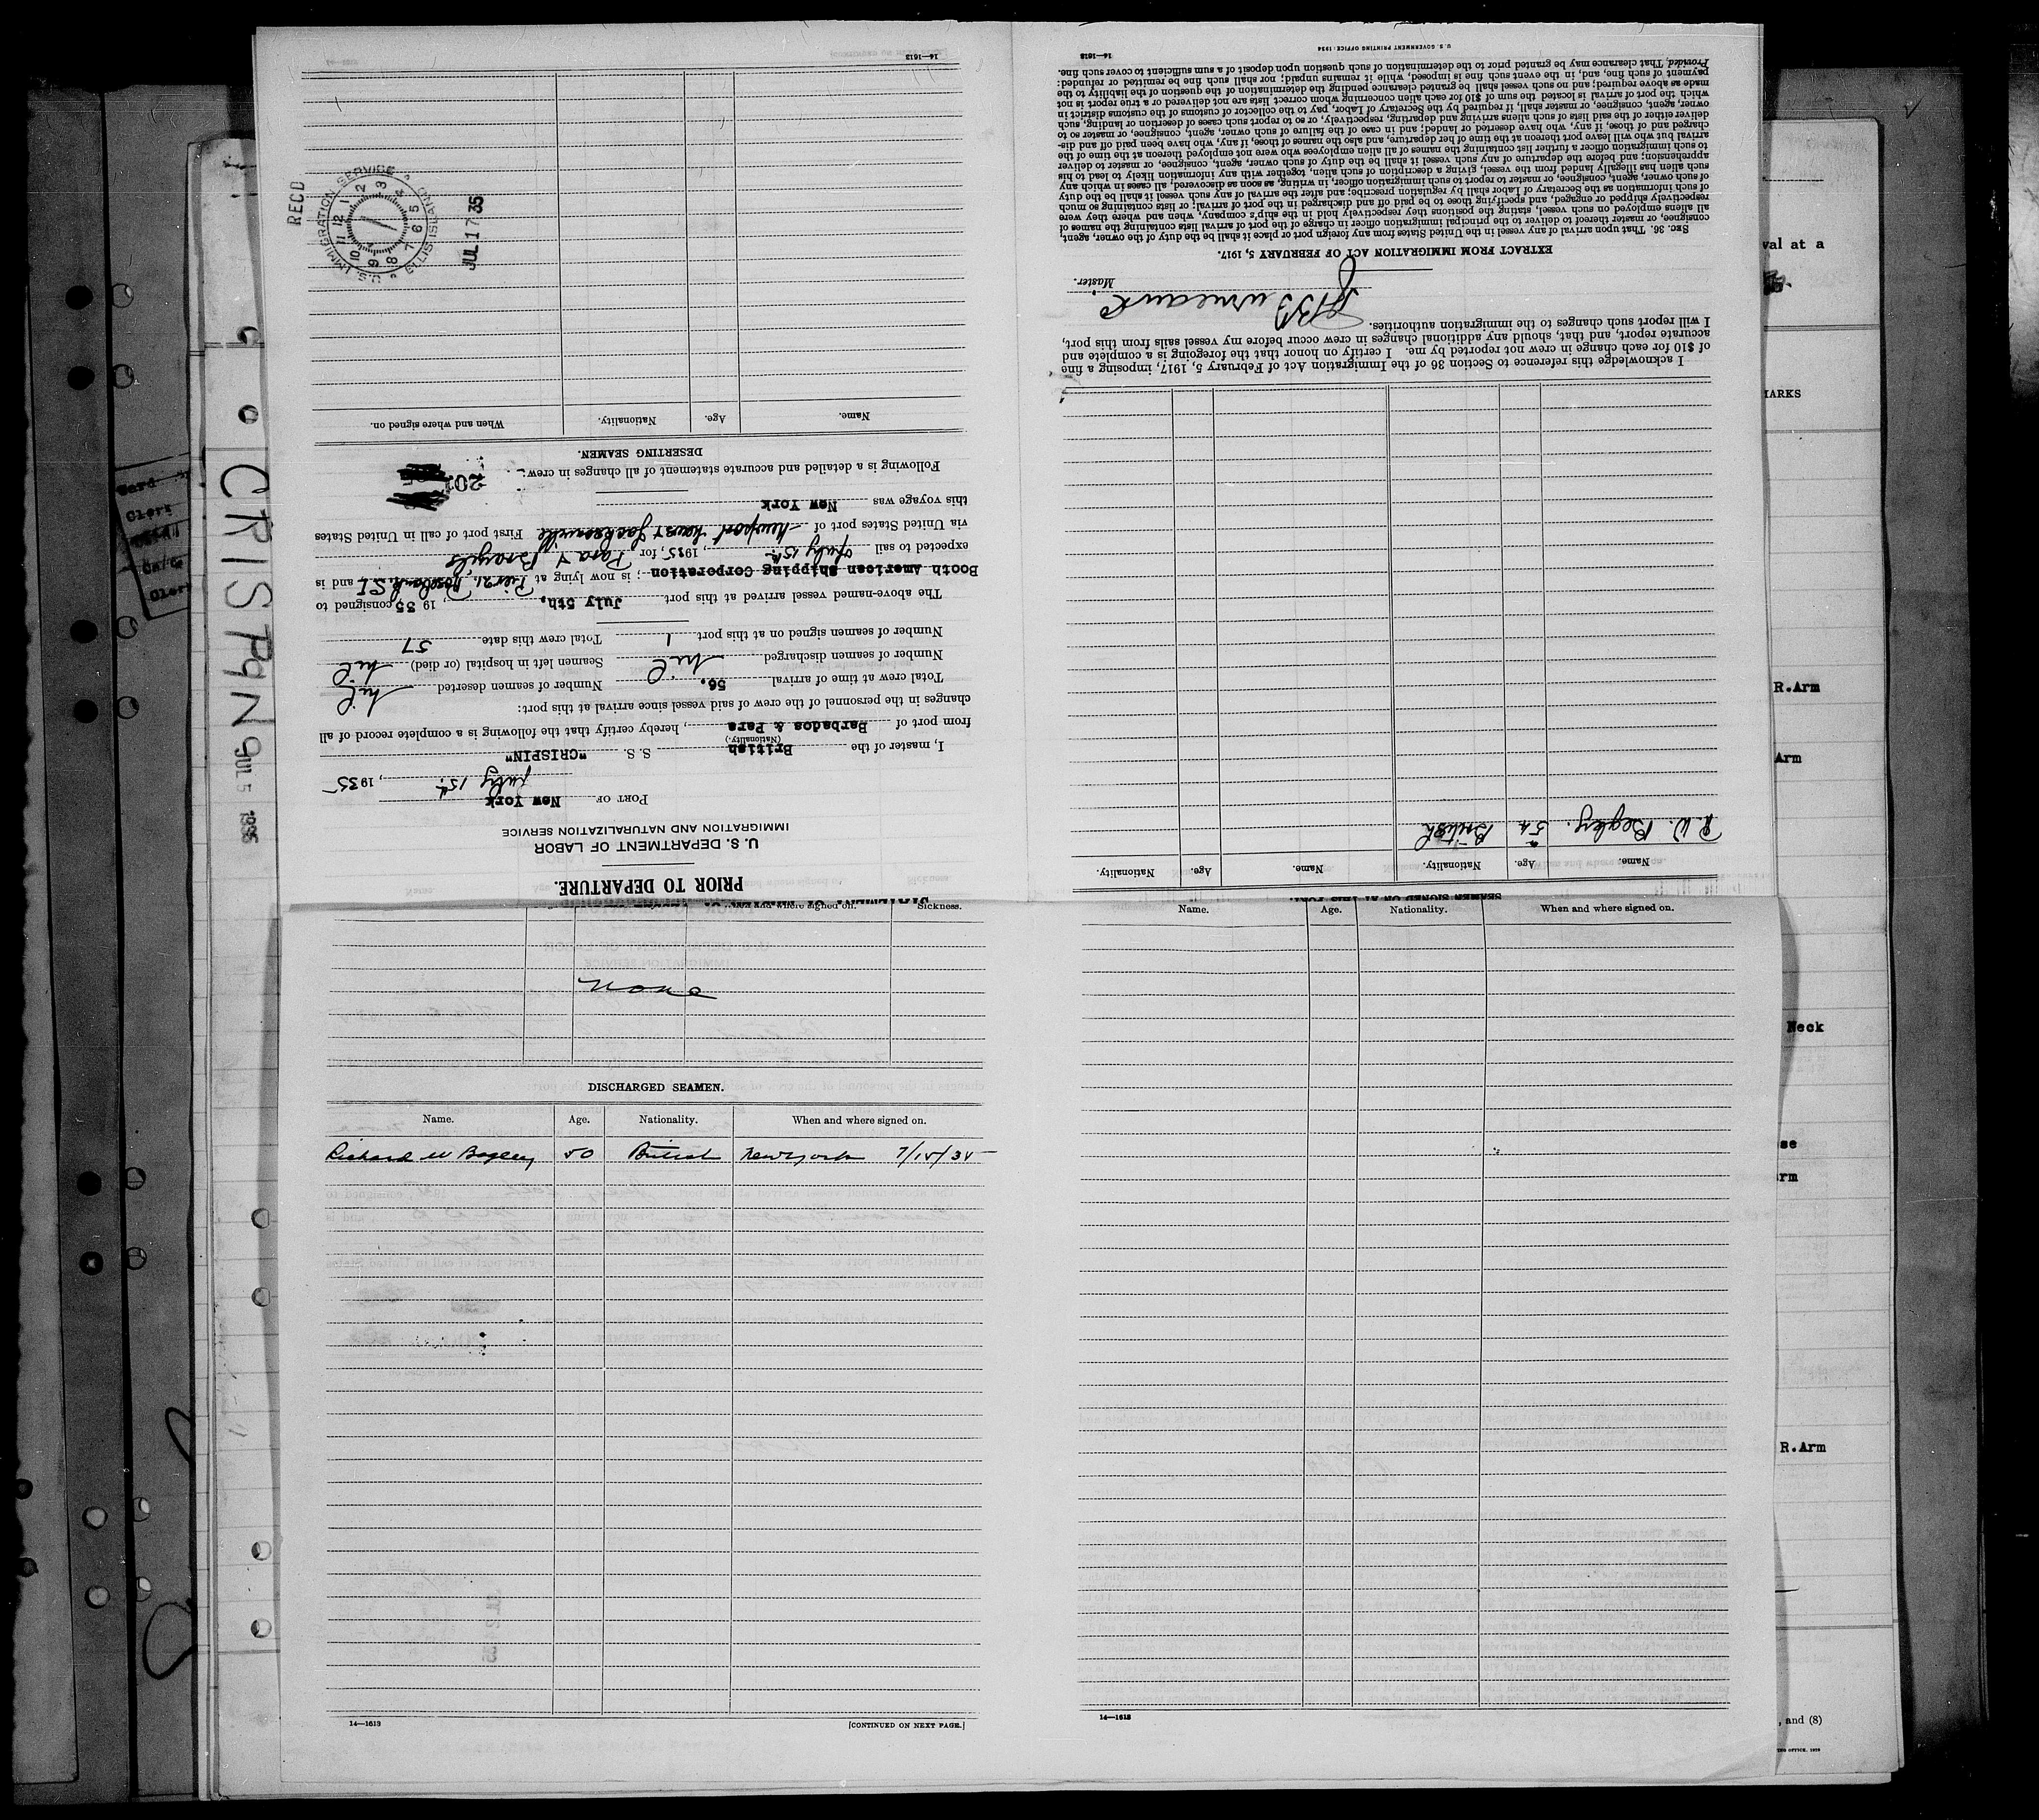 PRIOR TO DEPARTURE.
U. S. DEPARTMENT OF LABOR
IMMIGRATION AND NATURALIZATION SERVICE
PORT OF New York
July 15th, 1935
I, master of the British S. S. "CRISPIN"
(Nationality.)
from port of Barbados & Para, hereby certify that the following is a complete record of all
changes in the personnel of the crew of said vessel since arrival at this port:
Total crew at time of arrival 56. Number of seamen deserted Nil
Number of seamen discharged Nil Seamen left in hospital (or died) Nil
Number of seamen signed on at this port 1 Total crew this date 57
The above-named vessel arrived at this port July 5th, 1935, consigned to
Booth American Shipping Corporation; is now lying at Pier 21, Rosebank S.I. and is
expected to sail July 15th, 1935, for Para & Brazils
via United States port of Newport News & Jacksonville First port of call in United States
this voyage was New York
Following is a detailed and accurate statement of all changes in crew:
201
DESERTING SEAMEN.
Name. Age. Nationality. When and where signed on.
REC'D
U.S. IMMIGRATION SERVICE
ELLIS ISLAND
12 1 2 3 4 5 6 7 8 9 10 11
JUL 17 35
14—1613
SEAMEN SIGNED ON AT THIS PORT.
Name. Age. Nationality. Name. Age. Nationality.
R. W. Begley. 54 British
I acknowledge this reference to Section 36 of the Immigration Act of February 5, 1917, imposing a fine
of $10 for each change in crew not reported by me. I certify on honor that the foregoing is a complete and
accurate report, and that, should any additional changes in crew occur before my vessel sails from this port,
I will report such changes to the immigration authorities.
Master.
EXTRACT FROM IMMIGRATION ACT OF FEBRUARY 5, 1917.
SEC. 36. That upon arrival of any vessel in the United States from any foreign port or place it shall be the duty of the owner, agent,
consignee, or master thereof to deliver to the principal immigration officer in charge of the port of arrival lists containing the names of
all aliens employed on such vessel, stating the positions they respectively hold in the ship's company, when and where they were
respectively shipped or engaged, and specifying those to be paid off and discharged in the port of arrival; or lists containing so much
of such information as the Secretary of Labor shall by regulation prescribe; and after the arrival of any such vessel it shall be the duty
of such owner, agent, consignee, or master to report to such immigration officer, in writing, as soon as discovered, all cases in which any
such alien has illegally landed from the vessel, giving a description of such alien, together with any information likely to lead to his
apprehension; and before the departure of any such vessel it shall be the duty of such owner, agent, consignee, or master to deliver
to such immigration officer a further list containing the names of all alien employees who were not employed thereon at the time of the
arrival but who will leave port thereon at the time of her departure, and also the names of those, if any, who have been paid off and dis-
charged and of those, if any, who have deserted or landed; and in case of the failure of such owner, agent, consignee, or master so to
deliver either of the said lists of such aliens arriving and departing, respectively, or so to report such cases of desertion or landing, such
owner, agent, consignee, or master shall, if required by the Secretary of Labor, pay to the collector of customs of the customs district in
which the port of arrival is located the sum of $10 for each alien concerning whom correct lists are not delivered or a true report is not
made as above required; and no such vessel shall be granted clearance pending the determination of the question of the liability to the
payment of such fine, and, in the event such fine is imposed, while it remains unpaid; nor shall such fine be remitted or refunded:
Provided, That clearance may be granted prior to the determination of such question upon deposit of a sum sufficient to cover such fine.
14—1613
U. S. GOVERNMENT PRINTING OFFICE: 1934
When and where signed on. Sickness.
None
DISCHARGED SEAMEN.
Name. Age. Nationality. When and where signed on.
Richard W Bagley 50 British New York 7/15/35
14—1613 [CONTINUED ON NEXT PAGE.]
Name. Age. Nationality. When and where signed on.
14—1613
CRISPIN
JUL 5 1935
Ward
Clerk
Clerk
val at a
MARKS
R.Arm
Arm
Neck
se
rm
R.Arm
, and (8)